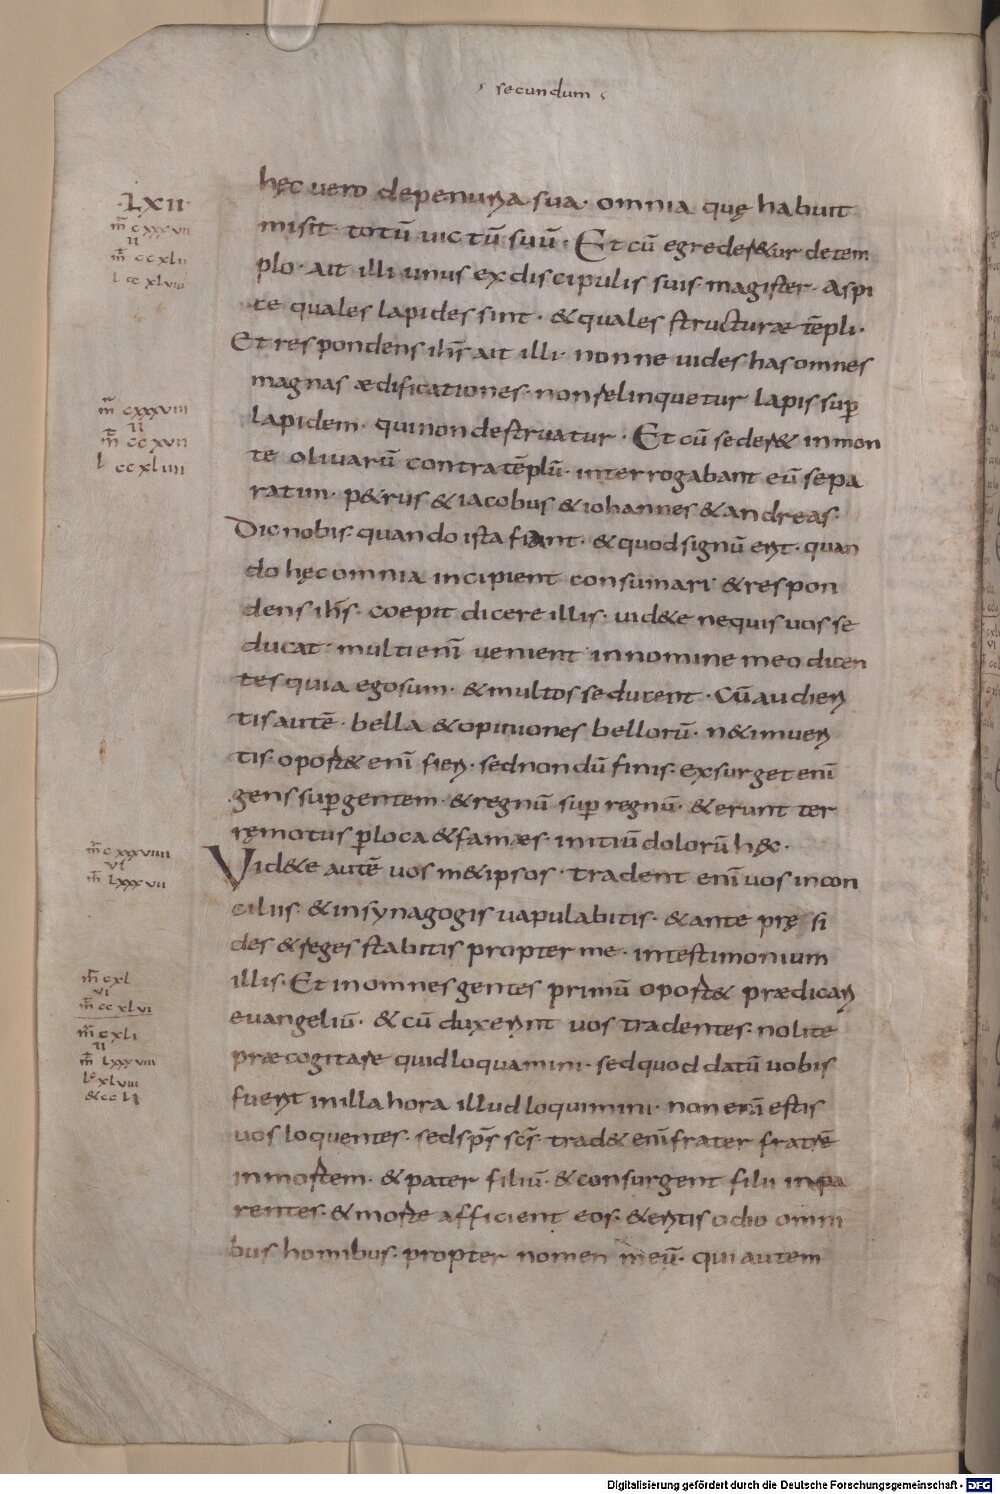 secundum
·LXII·
m̄ cxxxvii
ii
m̄ ccxlii
l ccxlviii
hęc uero depenuria sua· omnia quę habuit
misit· totū uictū suū· Et cū egrederetur detem
plo· ait illi unus exdiscipulis suis· magister· aspi
te quales lapides sint· &quales structuræ tēpli·
Et respondens ihs̄ ait illi· nonne uides has omnes
magnas ædificationes· nonrelinquetur lapis sup̄
m̄ cxxxviii
ii
m̄ ccxvii
l ccxliiii
lapidem· quinon destruatur· Et cū seder& inmon
te oliuarū contra tēplū· interrogabant eū sepa
ratim· p&rus &iacobus &iohannes &andreas·
Dic nobis· quando ista fiant· &quod signū erit· quan
do hęc omnia incipient consumari &respon
dens ihs̄· coepit dicere illis· uid&e nequis uos se
ducat· multi enī uenient innomine meo dicen
tes quia egosum· &multos seducent· Cū audieri
tis autē· bella &opiniones bellorū· n&imueri
tis· oport& enī fieri· sed nondū finis· exsurget enī
gens sup̄gentem· &regnū sup̄ regnū· &erunt ter
ręmotus p̄loca &famæs· initiū dolorū hęc·
m̄ cxxxviiii
vi
m̄ lxxxvii
Vid&e autē uos m&ipsos· tradent enī uos incon
ciliis· &insynagogis uapulabitis· &ante pręsi
des &reges stabitis propter me· intestimonium
m̄ cxl
vi
m̄ ccxlvi
illis· Et inomnes gentes primū oport& prædicari
euangeliū· &cū duxerint uos tradentes· nolite
m̄ cxli
ii
m̄ lxxxviii
l cxlviii
&ccli
præcogitare quid loquamini· sed quod datū uobis
fuerit inilla hora illud loquimini· non enī estis
uos loquentes· sed sps̄ scs̄· trad& enī frater fratrē
inmortem· &pater filiū· &consurgent filii inpa
rentes· &morte afficient eos· &eritis odio omni
bus hominibus· propter nomen meū· qui autem
Digitalisierung gefördert durch die Deutsche Forschungsgemeinschaft - DFG